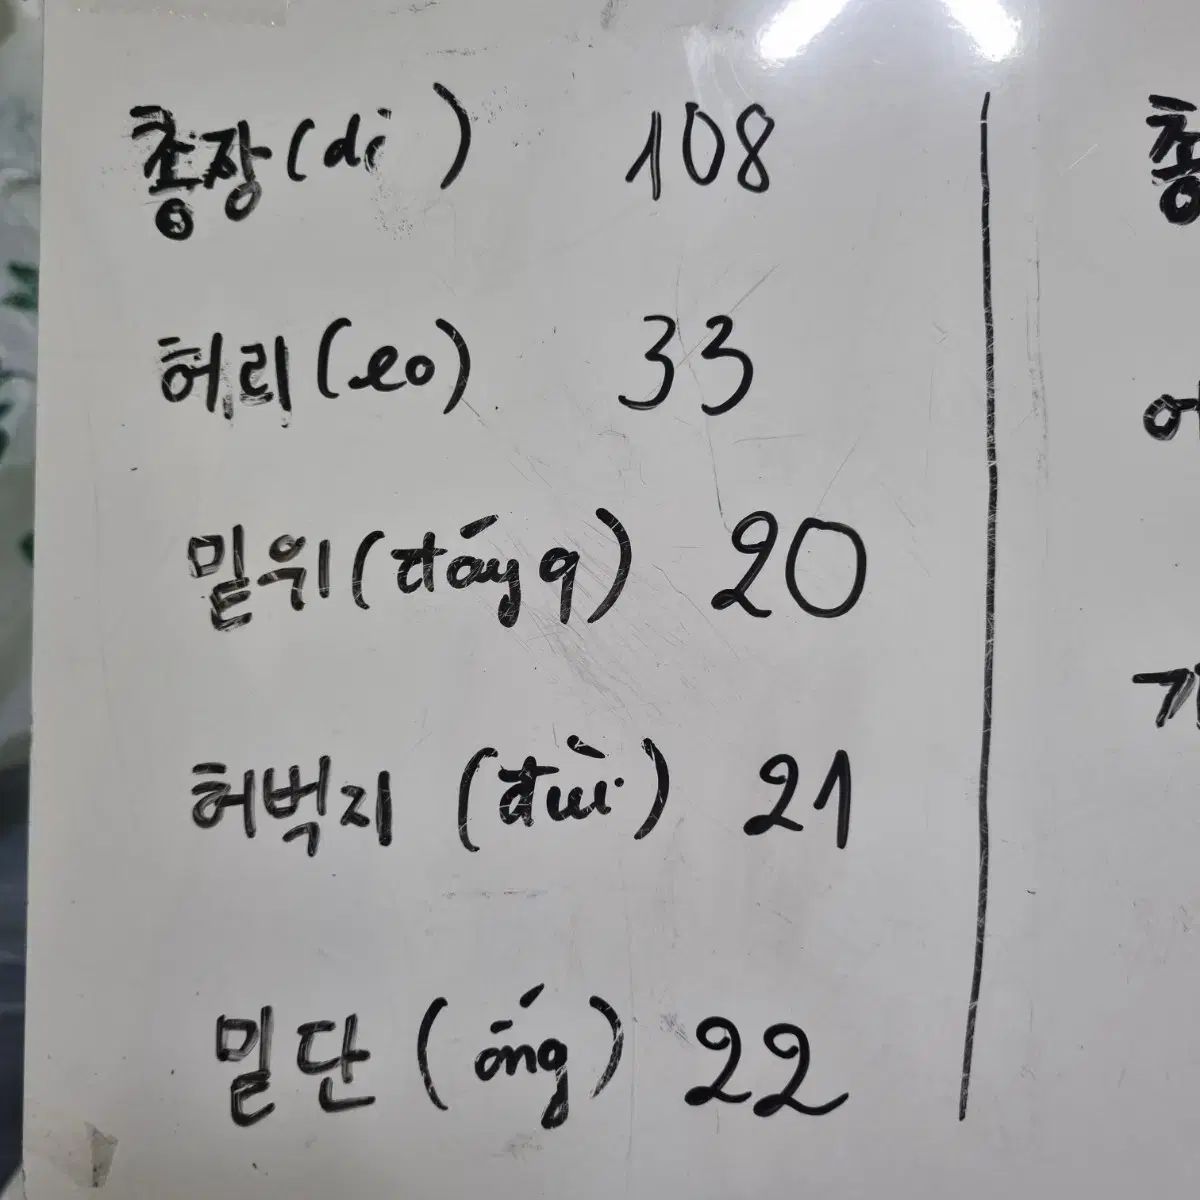 총장(di ) 108
허리(eo) 33
밑위(đáy q) 20
허벅지 (đùi) 21
밑단 (ống) 22
총
기